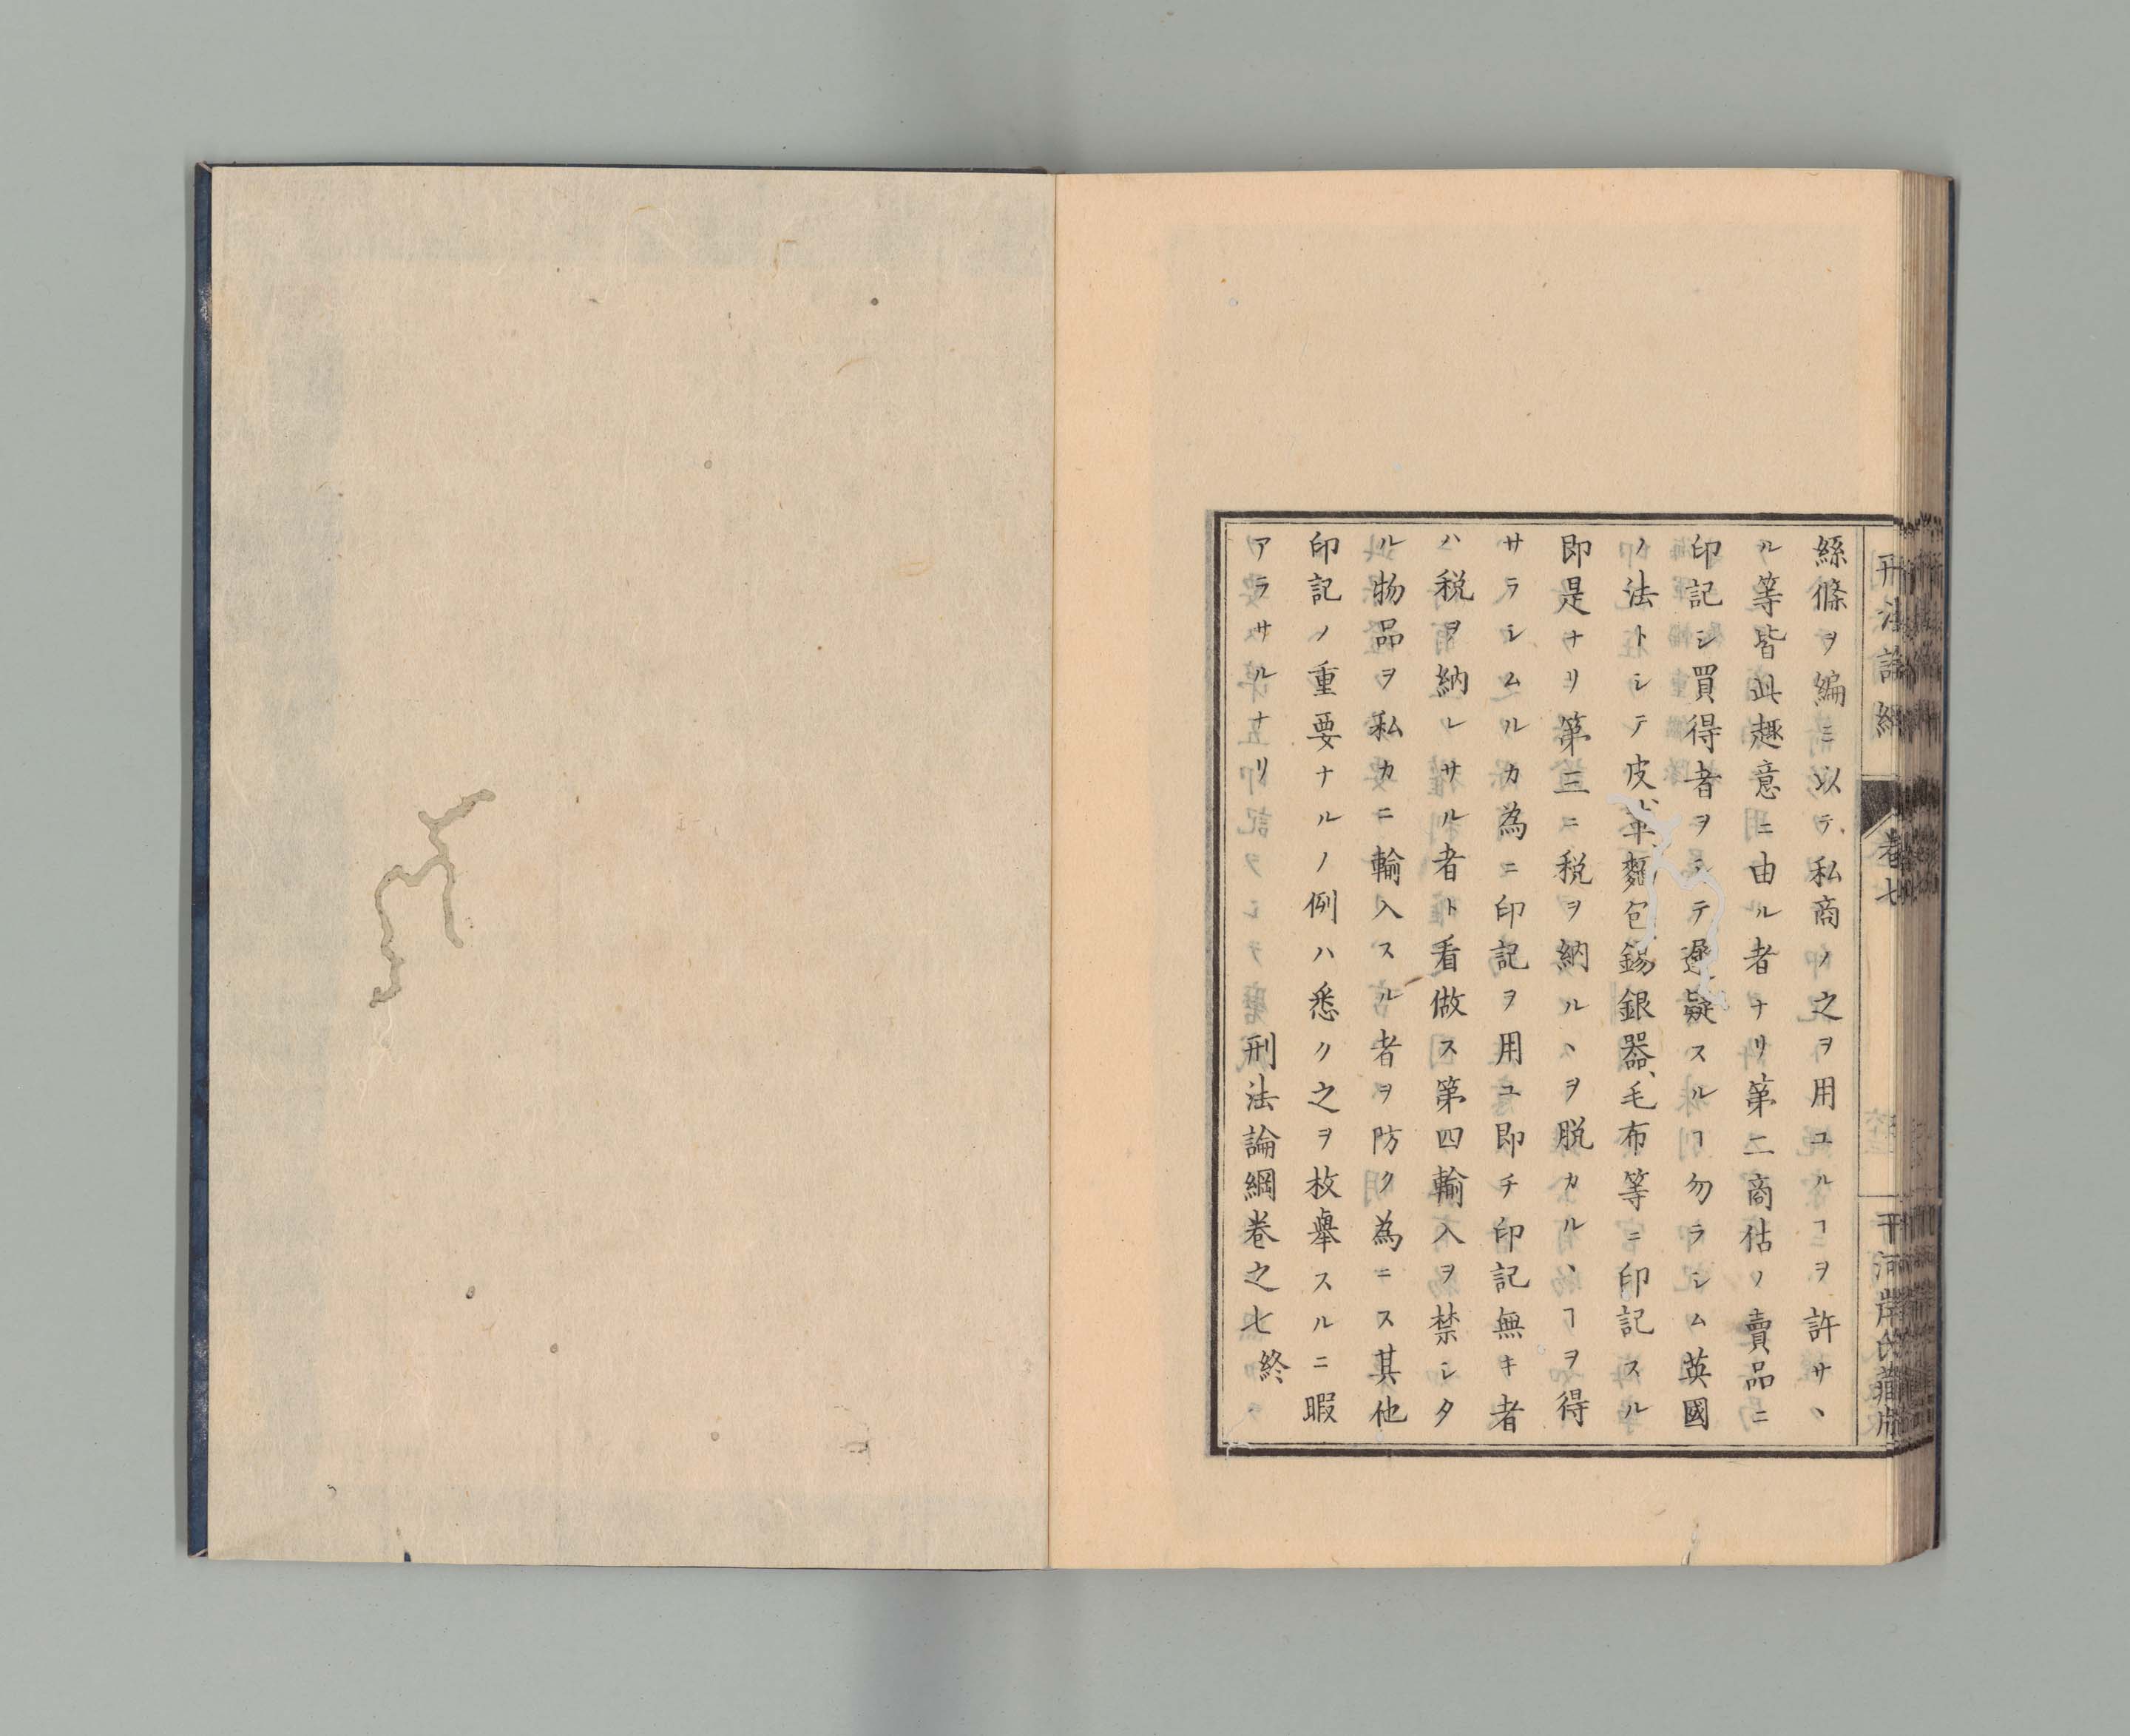 絲絛ヲ編ミ以テ私商ノ之ヲ用ユルヿヲ許サヽ
ル等皆此趣意ニ由ル者ナリ第二商估ノ賣品ニ
印記シ買得者ヲシテ遲疑スルヿ勿ラシム英國
ノ法トシテ皮革麵包錫銀器、毛布等ニ印記スル
即是ナリ第三ニ税ヲ納ルヽヲ脱カルヽヿヲ得
サラシムルカ為ニ印記ヲ用ユ即チ印記無キ者
ハ税ヲ納レサル者ト看做ス第四輸入ヲ禁シタ
ル物品ヲ私カニ輸入スル者ヲ防ク為ニス其他
印記ノ重要ナルノ例ハ悉ク之ヲ枚舉スルニ暇
アラサルナリ
刑法論綱卷之七終
刑法論綱
卷七
干河岸氏藏版